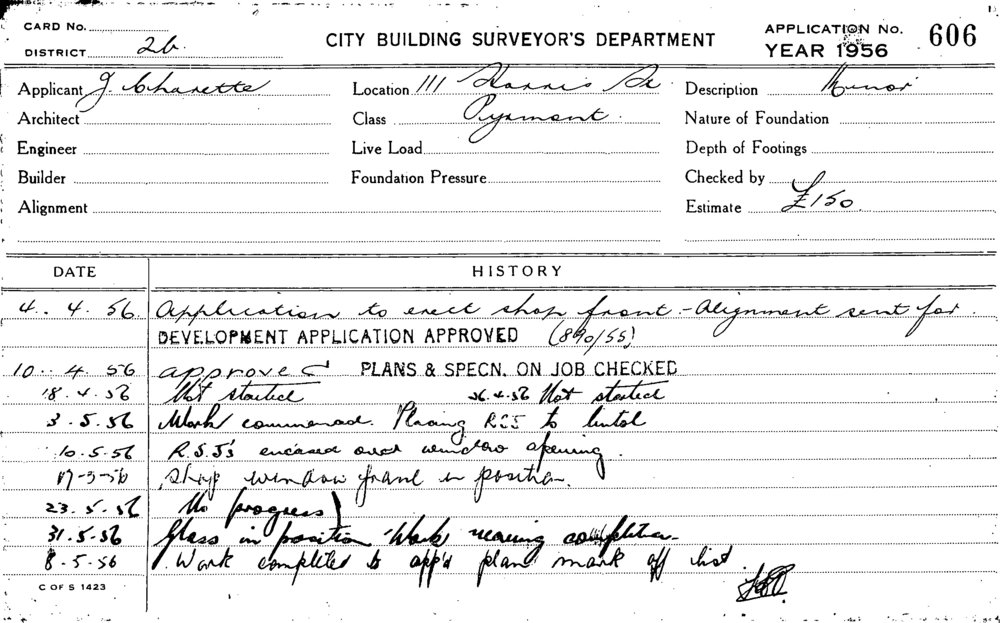 CARD No.
DISTRICT 2b.
CITY BUILDING SURVEYOR'S DEPARTMENT
APPLICATION No. 606
YEAR 1956
Applicant J. Charette Location 111 Harris St Description Minor
Architect Class Pyrmont. Nature of Foundation
Engineer Live Load Depth of Footings
Builder Foundation Pressure Checked by
Alignment Estimate £150
DATE HISTORY
4. 4. 56. Application to erect shop front - Alignment sent for.
DEVELOPMENT APPLICATION APPROVED (890/55)
10. 4. 56 approved PLANS & SPECN. ON JOB CHECKED
18.4.56 Not started 26.4.56 Not started
3.5.56 Work commenced. Placing RSJ to lintol
10.5.56 R.S.J's encased over window opening.
17-5-56 Shop window frame in position.
23.5.56 No progress
31.5.56 Glass in position Work nearing completion
8.5.56 Work completed to app'd plan mark off list
C OF S 1423